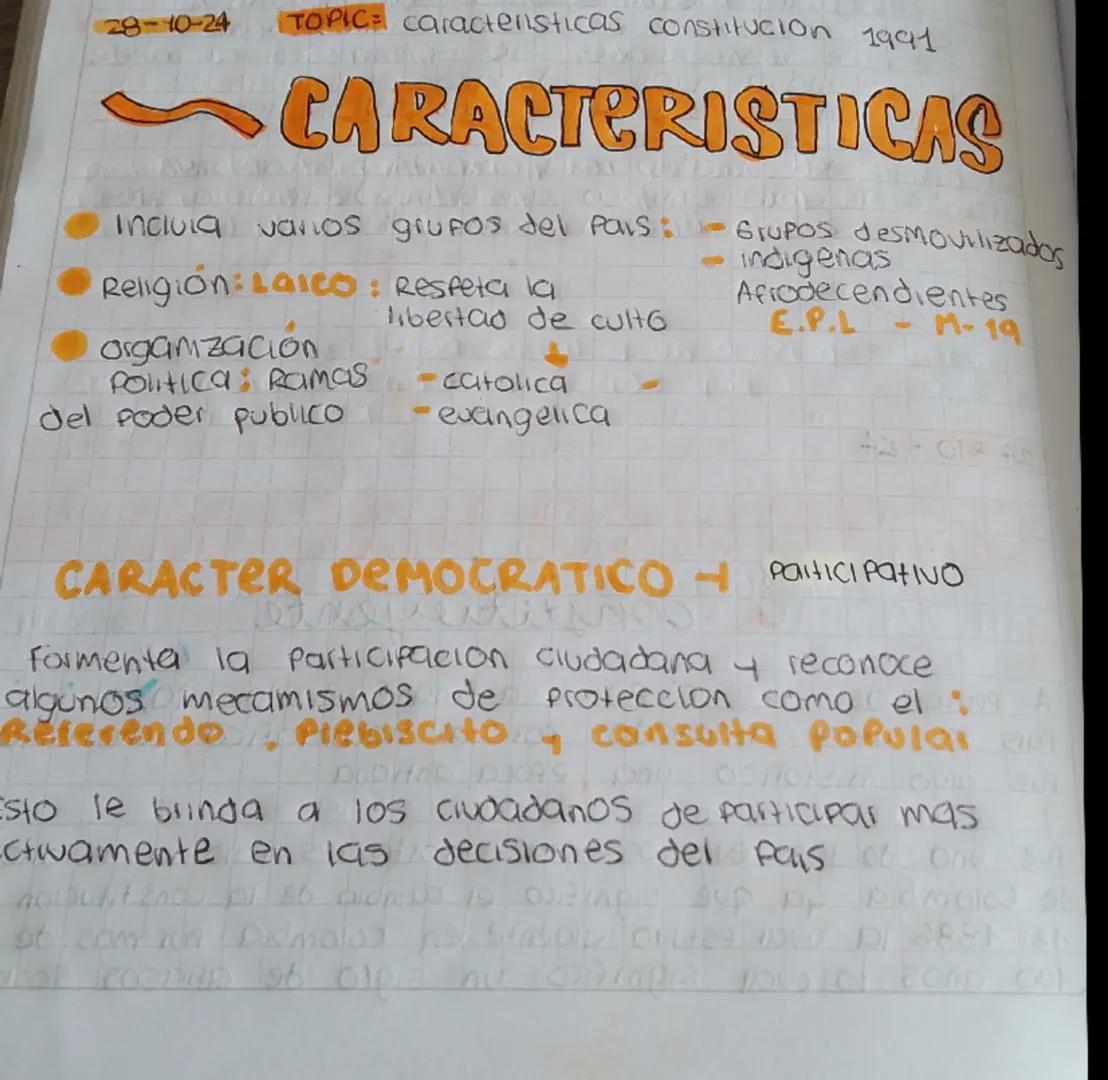 28-10-24 TOPIC: caracteristicas constitucion 1991
CARACTERISTICAS
Incluia varios grupos del Pais: - Grupos desmovilizados
- indigenas
Religión: Laico: Respeta la
Afrodecendientes
libertad de culto
E.P.L - M-19
organización
Politica: Ramas - catolica -
del poder publico - evangelica
CARACTER DEMOCRATICO → Participativo
Formenta la Participacion ciudadana y reconoce
algunos mecamismos de Proteccion como el:
Referendo, Plebiscito y consulta Popular
Esto le brinda a los ciudadanos de Participar mas
ctivamente en las decisiones del Pais